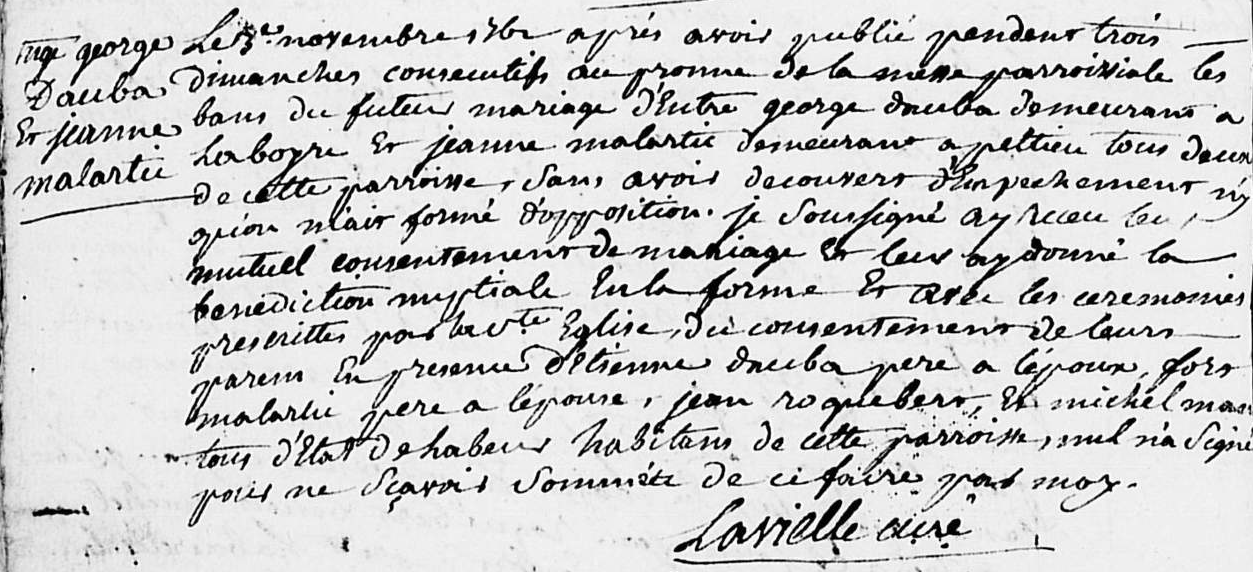 mge george
Dauba
Et jeanne
malartic
Le 3e novembre 1762 aprés avoir publié pendent trois
dimanches consecutifs au pronne de la messe parroissiale les
bans du futur mariage d'Entre george dauba demeurant a
Laboyre Et jeanne malartic demeurant a peltieu tous deux
de cette parroisse, sans avoir decouvert d'Enpechement ny
qu'on m'ait formé d'opposition. je soussigné ay receu leur
mutuel consentement de mariage Et leur ay donné la
benediction nuptiale En la forme Et avec les ceremonies
prescrittes par la Ste Eglise, du consentement de leurs
parens En presence d'Etienne dauba pere a l'époux, fort
malartic pere a l'épouse, jean roquebert, Et michel
tous d'Etat de labeur habitans de cette parroisse, nul n'a signé
pour ne sçavoir de ce faire par moy.
Lavielle curé